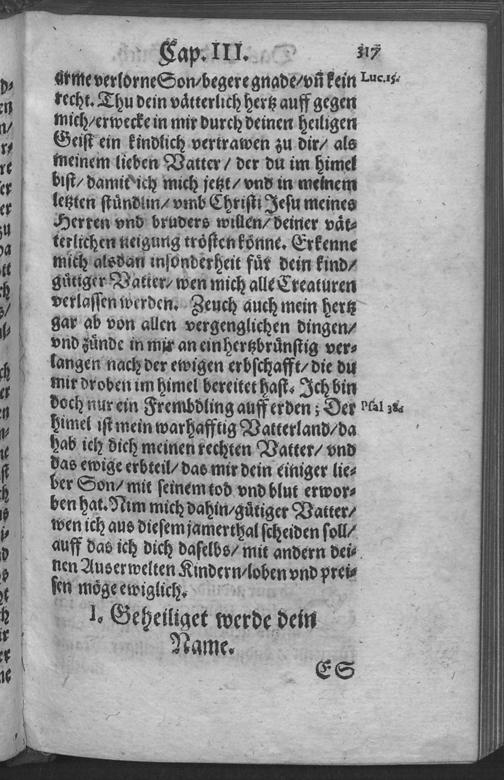 Cap. III. 317
arme verlorne Son/begere gnade/vñ kein Luc.15.
recht. Thu dein vätterlich hertz auff gegen
mich/erwecke in mir durch deinen heiligen
Geist ein kindlich vertrawen zu dir/ als
meinem lieben Vatter/ der du im himel
bist/damit ich mich jetzt/ vnd in meinem
letzten stündlin/ vmb Christi Jesu meines
Herren vnd bruders willen/ deiner vät-
terlichen neigung trösten könne. Erkenne
mich alsdan insonderheit für dein kind/
gütiger Vatter/ wen mich alle Creaturen
verlassen werden. Zeuch auch mein hertz
gar ab von allen vergenglichen dingen/
vnd zünde in mir an ein hertzbrünstig ver-
langen nach der ewigen erbschafft/ die du
mir droben im himel bereitet hast. Ich bin
doch nur ein Frembdling auff erden; Der Psal 38.
himel ist mein warhafftig Vatterland/da
hab ich dich meinen rechten Vatter/ vnd
das ewige erbteil/ das mir dein einiger lie-
ber Son/ mit seinem tod vnd blut erwor-
ben hat. Nim mich dahin/gütiger Vatter/
wen ich aus diesem jamerthal scheiden soll/
auff das ich dich daselbs/ mit andern dei-
nen Auserwelten Kindern/loben vnd prei-
sen möge ewiglich.
1. Geheiliget werde dein
Name.
ES